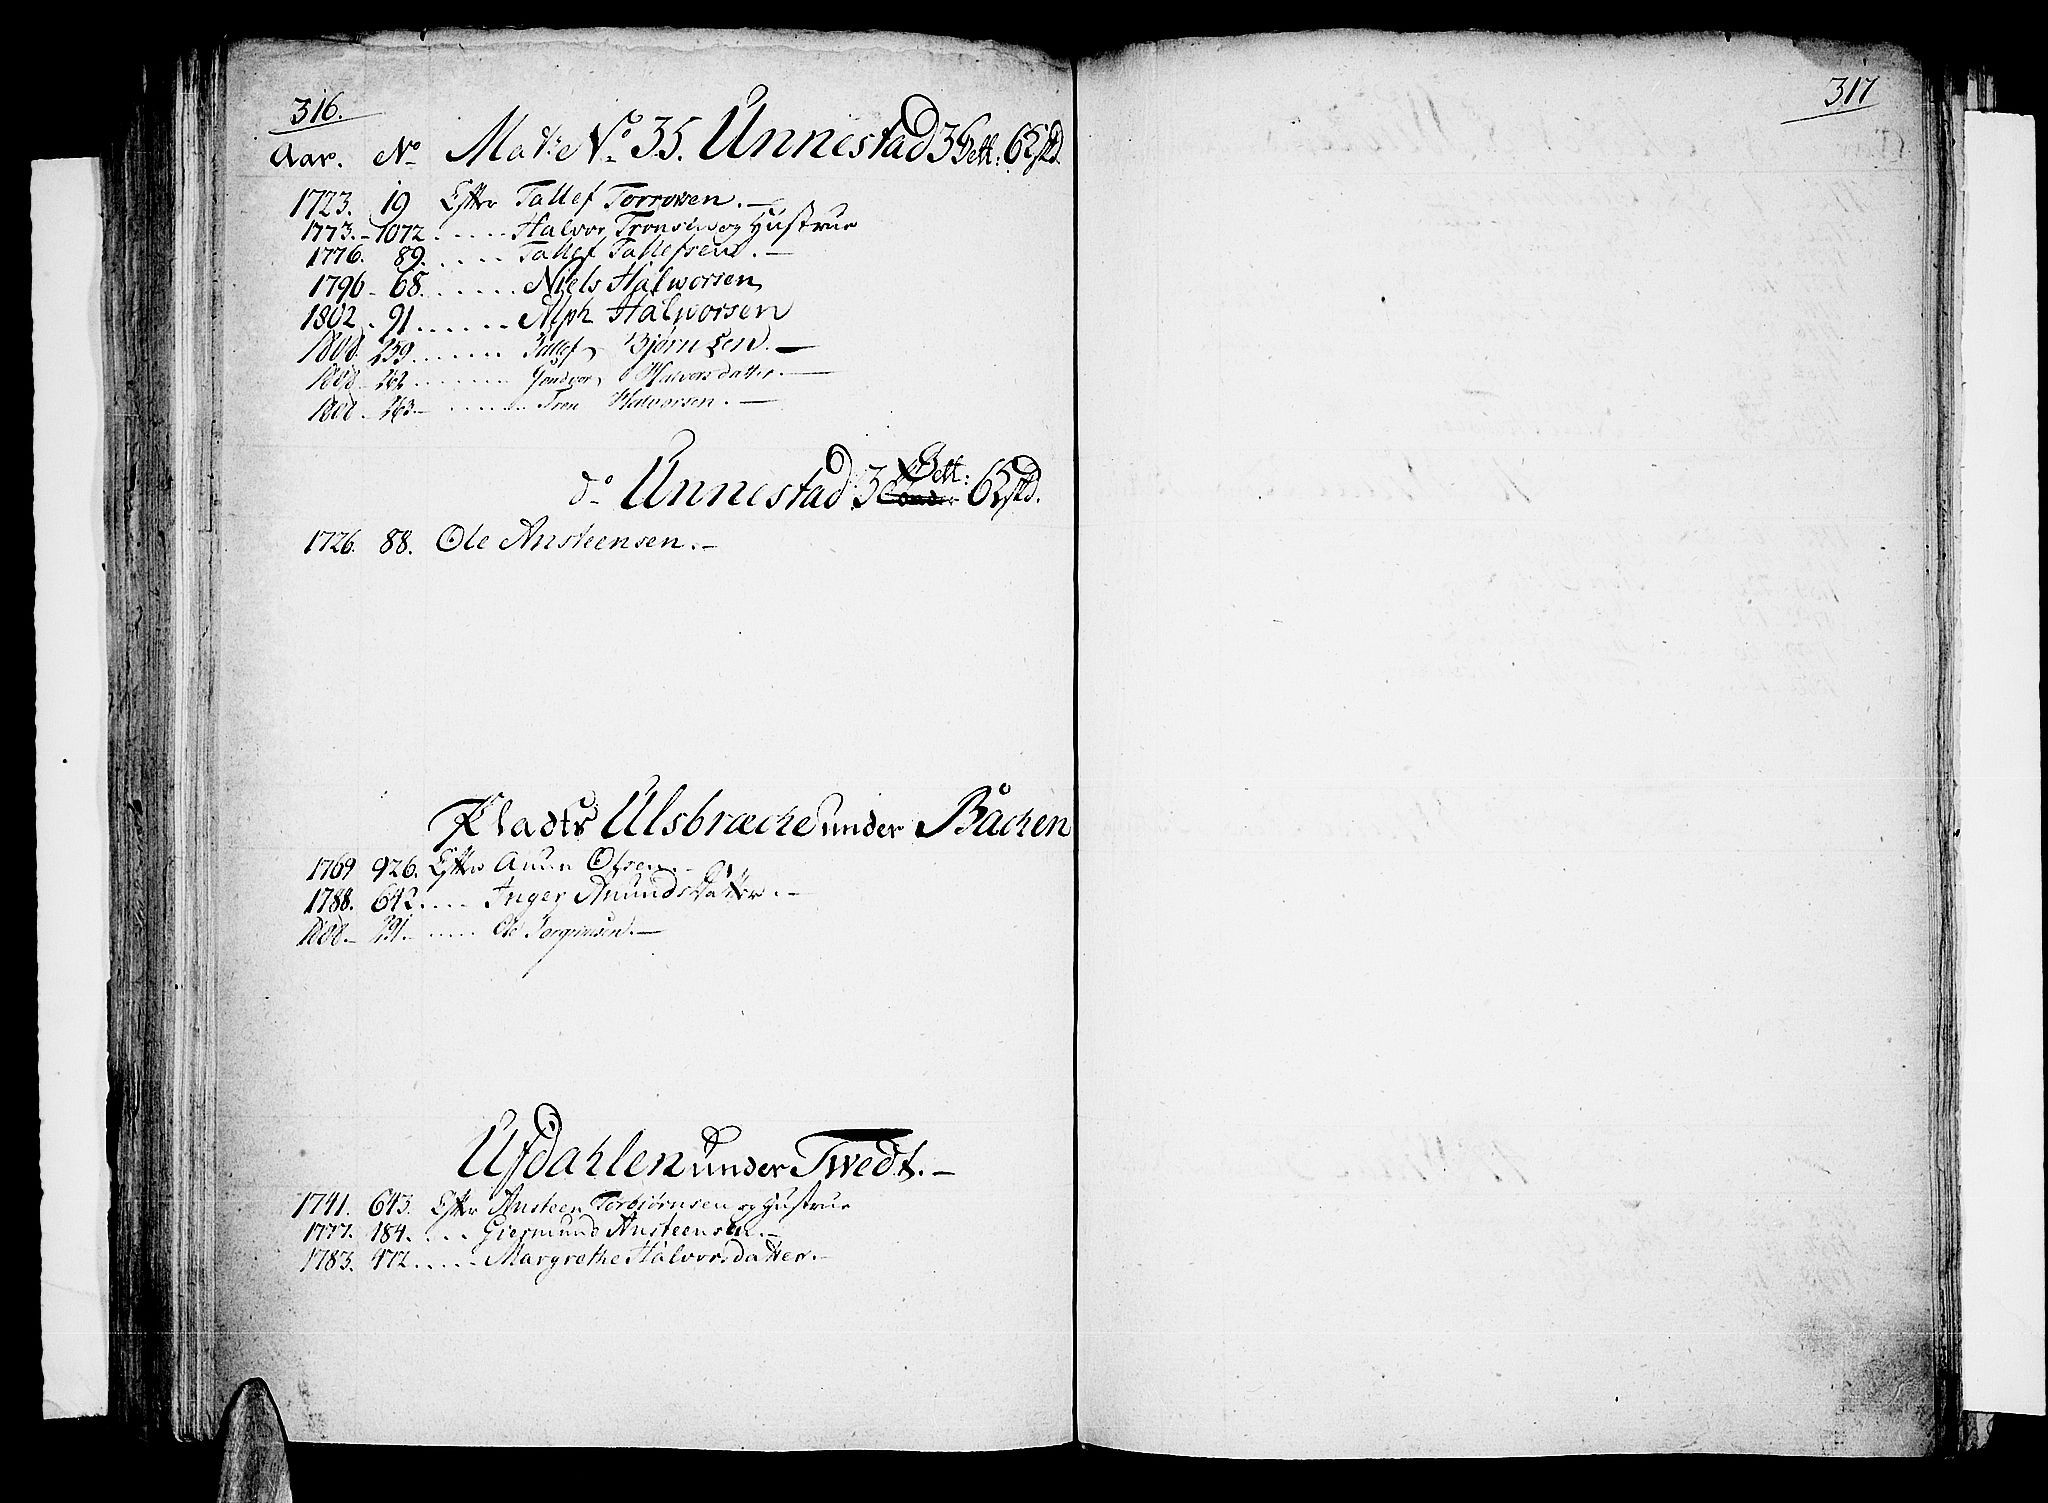 316.
Aar. No Mat:e No 35. Unnestad 3 Sett: 6 Sk
1723. 19 Efter Tallef Torrowen. —
1773. - 1072 ..... Halvor Tronsen og Hustrue
1776. 89. ..... Tallef Tallefsen. —
1796 - 68. ...... Niels Halworsen
1802 . 91 ...... Alph Halworsen
1808. 259 ....... Tallef Bjørnsen. —
1808 - 262 ........ Gondvor Halvorsdatter. —
1808 - 263 - ....... Tron Halvorsen. —
do Unnestad 3 Sett: 6
1726. 88. Ole Ansteensen. —
Pladts Ulsbræche under Båchen
1769 926. Efter Aunn Olsen —
1788. 642. .... Inger Anundsdatter. —
1808 - 291. - ..... Ole Jorgensen. —
Ufdahlen under Twedt. —
1741. 643. Efter Ansteen Torbjørnsen og Hustrue
1777. 184. .... Giermund Ansteensen. —
1783. 472 ..... Margrethe Halvorsdatter. —
317